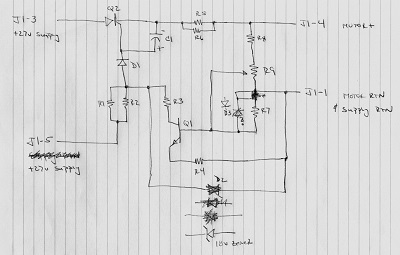 Q2
J1-3
+27V Supply
R5
R6
C1
J1-4
MOTOR+
R8
D1
R9
R1
R2
R3
J1-1
MOTOR RTN
& Supply RTN
D3
R7
Q1
J1-5
+27V Supply
R4
D2
18V Zener